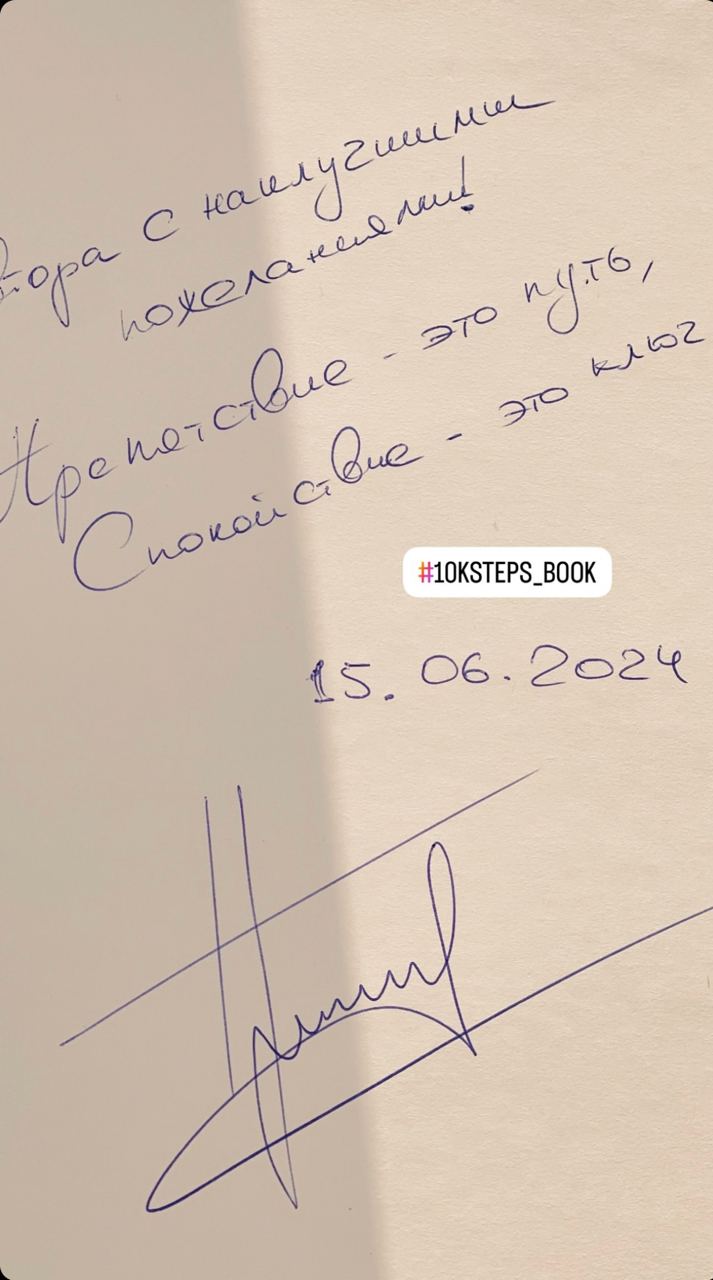 втора с наилучшими
пожеланиями!
Препятствие - это путь,
Спокойствие - это ключ
#10KSTEPS_BOOK
15.06.2024